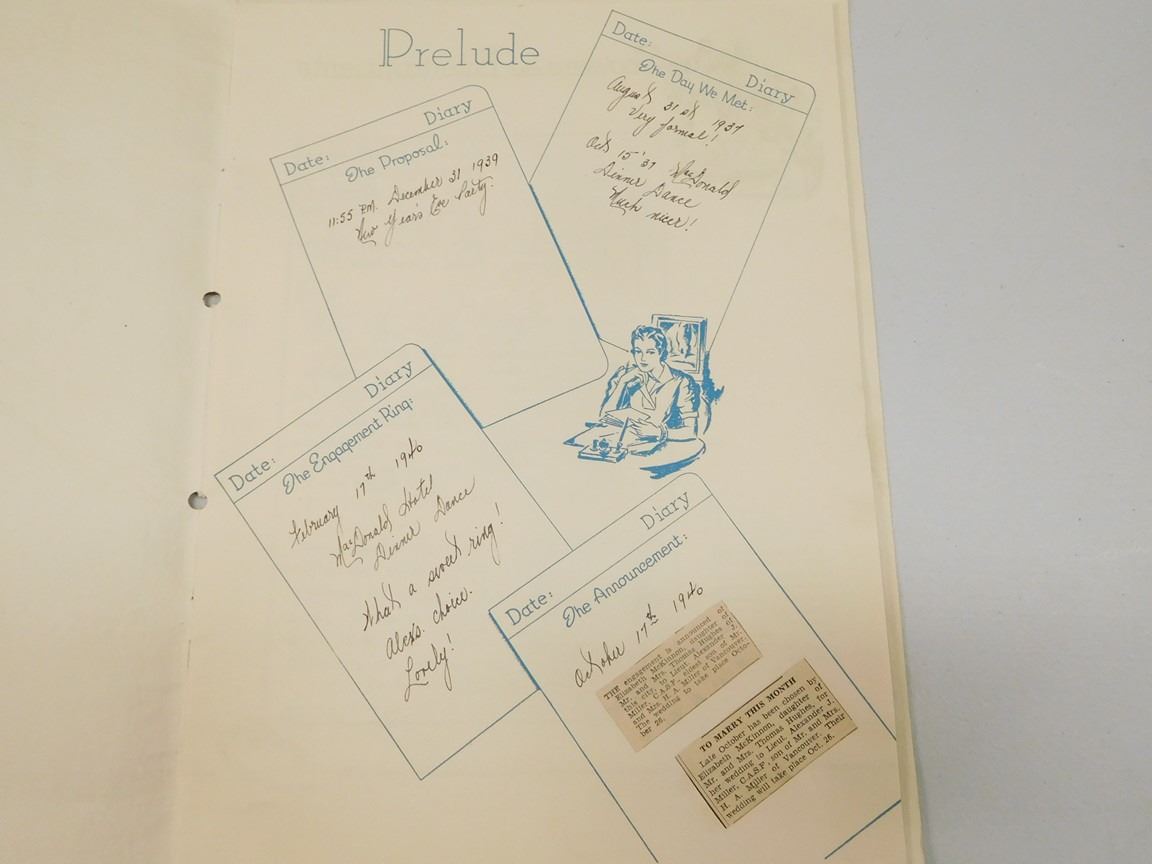 Prelude
Date:
Diary
The Day We Met:
August 31st 1937
Very formal!
Oct 15 '37 MacDonald
Dinner Dance
Much nicer!
Diary
Date:
The Proposal:
11:55 P.M. December 31 1939
New Year's Eve Party.
Diary
Date:
The Engagement Ring:
February 17th 1940
MacDonald Hotel
Dinner Dance
What a sweet ring!
Alex's choice.
Lovely!
Diary
Date:
The Announcement:
October 17th 1940
THE engagement is announced of
Elizabeth McKinnon, daughter of
Mr. and Mrs. Thomas Hughes of
this city, to Lieut. Alexander J.
Miller, C.A.S.F., eldest son of Mr.
and Mrs. H. A. Miller of Vancouver.
The wedding to take place Octo-
ber 26.
TO MARRY THIS MONTH
Late October has been chosen by
Elizabeth McKinnon, daughter of
Mr. and Mrs. Thomas Hughes, for
her wedding to Lieut. Alexander J.
Miller, C.A.S.F., son of Mr. and Mrs.
H. A. Miller of Vancouver. Their
wedding will take place Oct. 26.